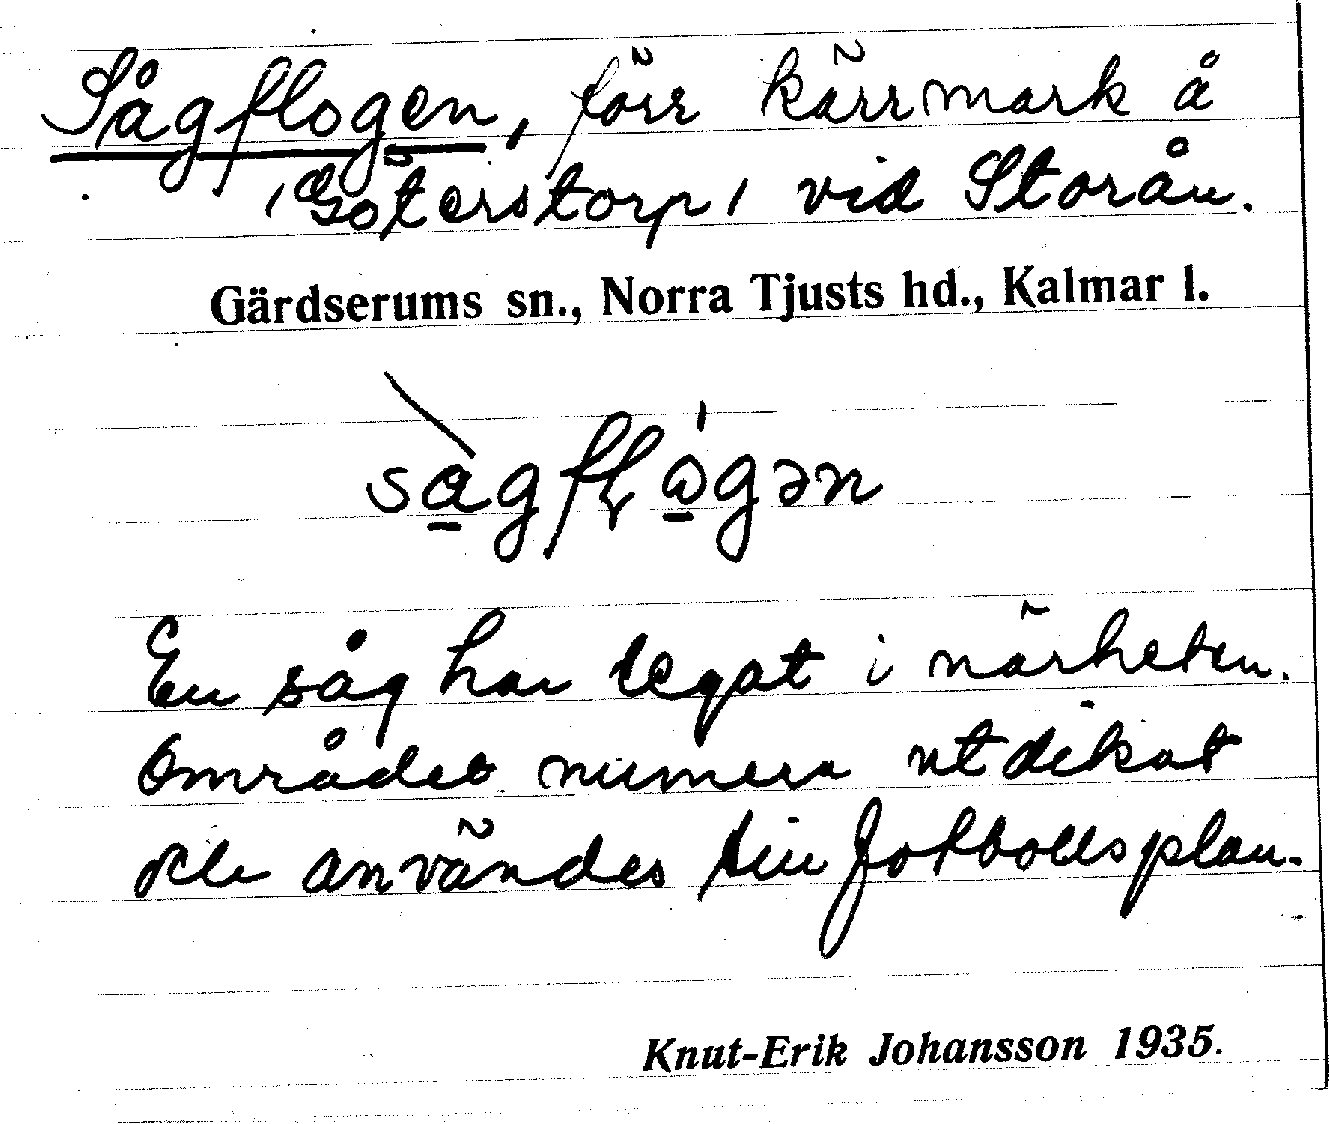 Sågflogen, förr kärrmark å
(Göterstorp) vid Storån.
Gärdserums sn., Norra Tjusts hd., Kalmar l.
En såg har legat i närheten.
Området numera utdikat
och användes till fotbollsplan.
Knut-Erik Johansson 1935.